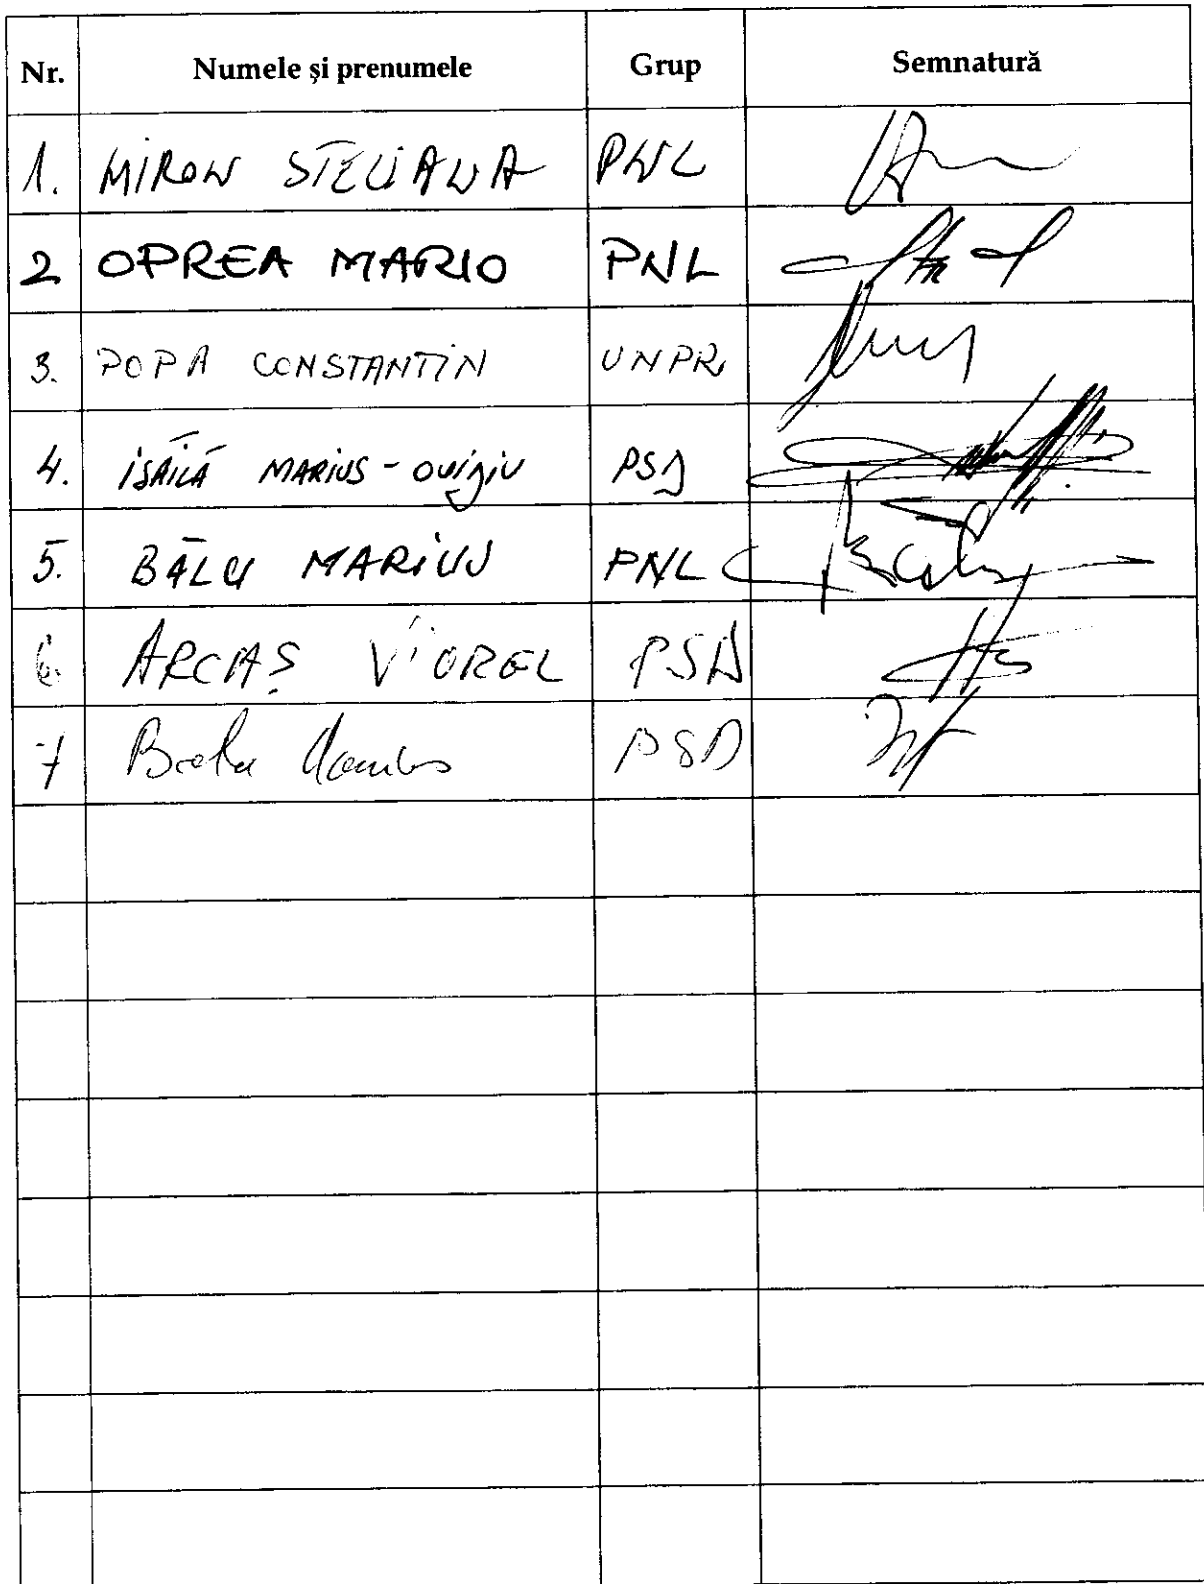 Nr. Numele și prenumele Grup Semnatură
1. MIRON STELIANA PNL
2 OPREA MARIO PNL
3. POPA CONSTANTIN UNPR
4. ISĂILĂ MARIUS-OVIDIU PSD
5. BĂLU MARIUS PNL
6. ARCAȘ VIOREL PSD
7 PSD